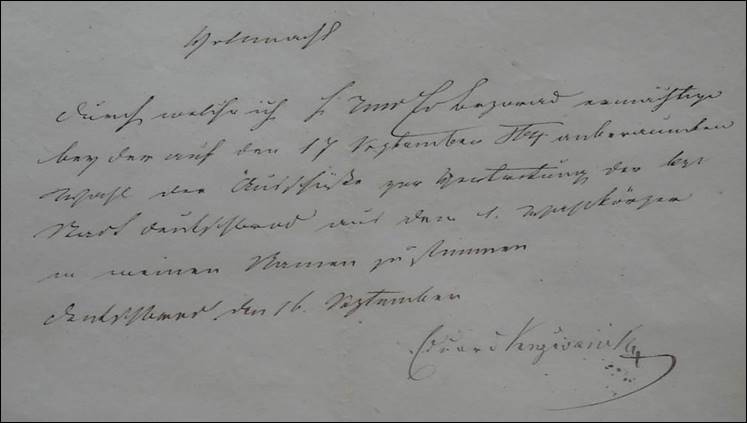 Vollmacht
durch welche ich H ermächtige
bey der auf den 17 September anberaumten
Wahl der Ausschüße zur Vertretung der kgl
Stadt deutschbrod aus dem 1. Wahlkörper
in meinen Namen zu stimmen
deutschbrod den 16. September
Eduard